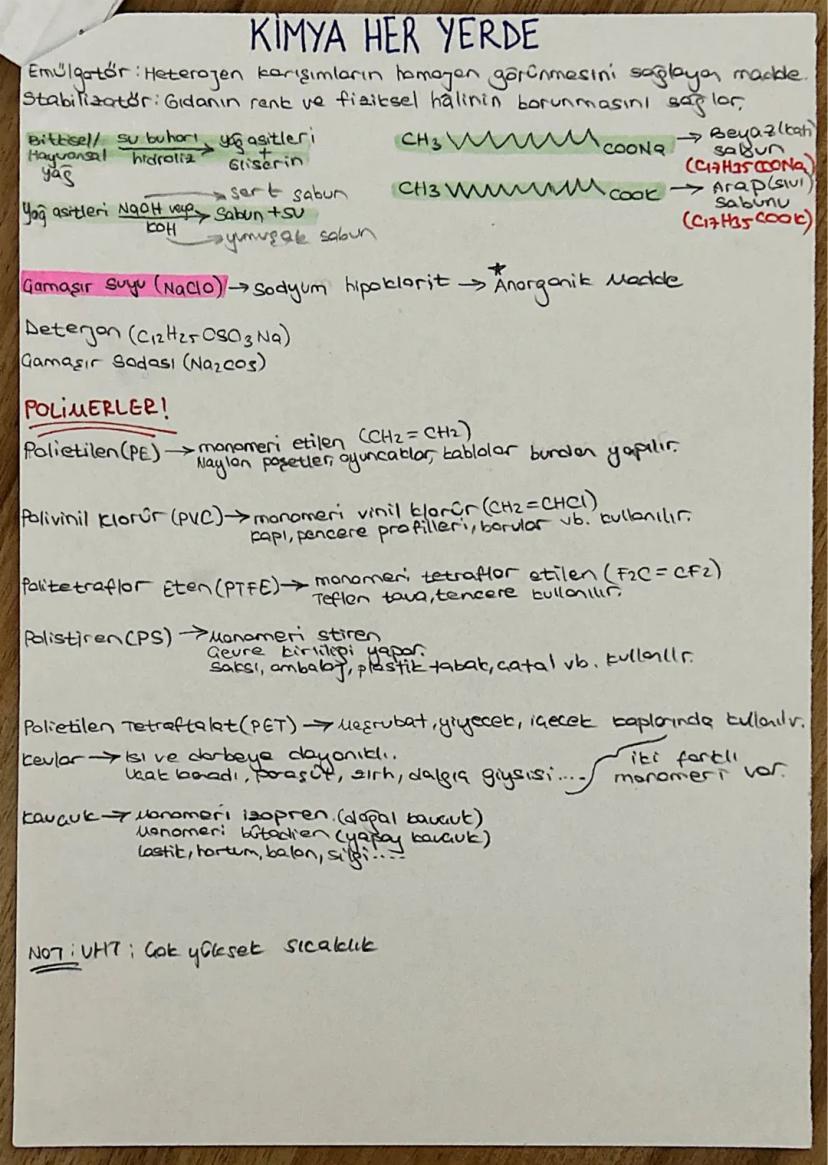 KİMYA HER YERDE
Emülgatör: Heterojen karışımların homojen görünmesini sağlayan madde.
Stabilizatör: Gıdanın renk ve fiziksel hâlinin korunmasını sağlar.
Bitkisel/Hayvansal yağ su buharı hidroliz → yağ asitleri + Gliserin
CH3 COONa → Beyaz (katı) sabun
(C17H35COONa)
CH3 COOK → Arap (sıvı) sabunu
(C17H35COOK)
→ sert sabun
Yağ asitleri NaOH veya KOH → Sabun + su
→ yumuşak sabun
Çamaşır suyu (NaClO) → Sodyum hipoklorit → *Anorganik Madde
Deterjan (C12H25OSO3Na)
Çamaşır Sodası (Na2CO3)
POLİMERLER!
Polietilen (PE) → monomeri etilen (CH2 = CH2)
Naylon poşetler, oyuncaklar, kablolar bundan yapılır.
Polivinil klorür (PVC) → monomeri vinil klorür (CH2 = CHCl)
kapı, pencere profilleri, borular vb. kullanılır.
Politetraflor Eten (PTFE) → monomeri tetraflor etilen (F2C = CF2)
Teflon tava, tencere kullanılır.
Polistiren (PS) → Monomeri stiren
Çevre kirliliği yapar.
Saksı, ambalaj, plastik tabak, çatal vb. kullanılır.
Polietilen Tetraftalat (PET) → Meşrubat, yiyecek, içecek kaplarında kullanılır.
Kevlar → Isı ve darbeye dayanıklı.
Uçak kanadı, paraşüt, zırh, dalgıç giysisi....
iki farklı
monomeri var.
Kauçuk → Monomeri izopren. (doğal kauçuk)
Monomeri bütadien (yapay kauçuk)
Lastik, hortum, balon, silgi....
NOT: UHT; Çok yüksek sıcaklık